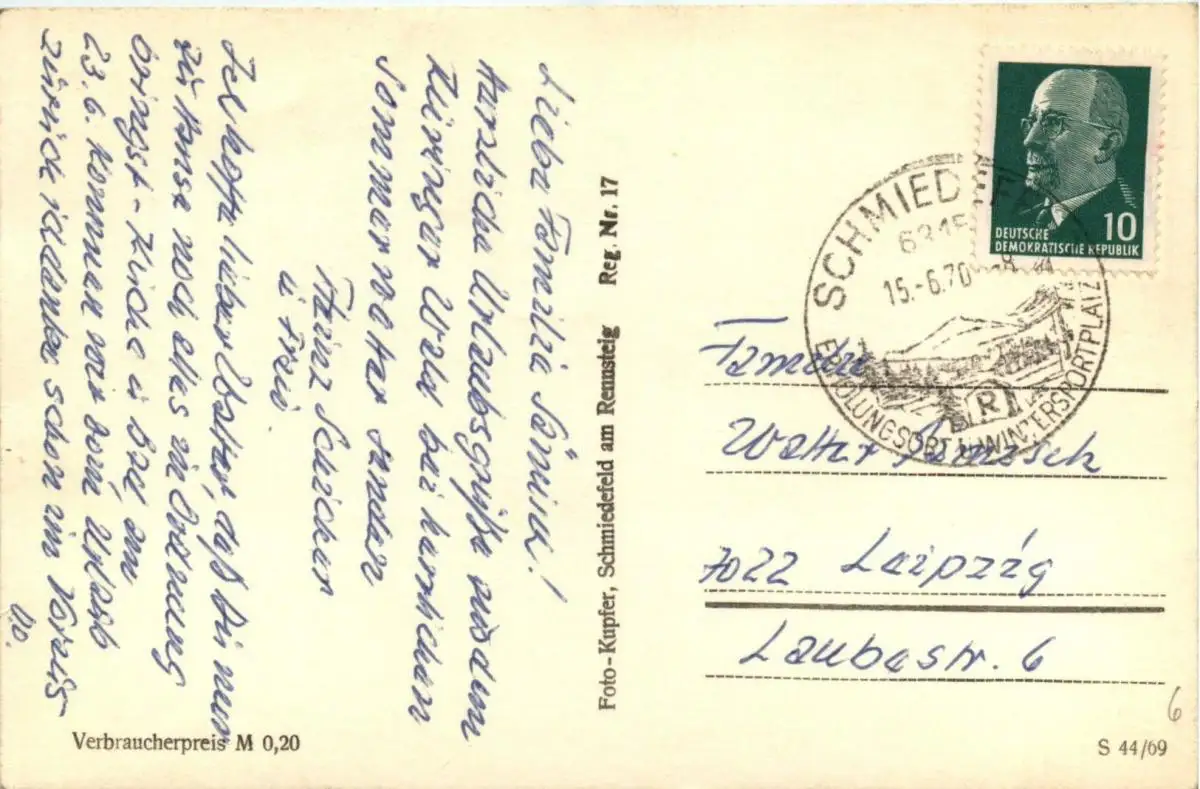 Liebe Familie
Herzliche Urlaubsgrüße aus dem
Thüringer Wald bei herrlichem
Sommerwetter senden
Heinz
u. Frid.
Ich hoffe lieber Walter, daß Du nun
zu Hause noch alles in Ordnung
bringst - Küche u. am
23.6. kommen wir vom Urlaub
zurück schon im Voraus
Foto-Kupfer, Schmiedefeld am Rennsteig Reg. Nr. 17
Verbraucherpreis M 0,20
10
DEUTSCHE
DEMOKRATISCHE REPUBLIK
SCHMIEDEFE
15.-6.70
ERHOLUNGSORT U. WINTERSPORTPLATZ
R
Familie
Walter
7022 Leipzig
Laubestr. 6
6
S 44/69